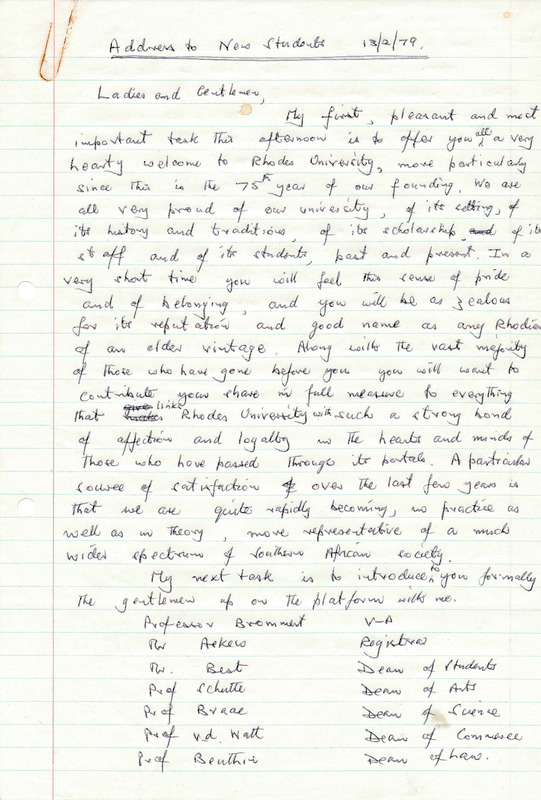 Address to New Students 13/2/79.
Ladies and Gentlemen,
My first, pleasant and most
important task this afternoon is to offer you all a very
hearty welcome to Rhodes University, more particularly
since this is the 75th year of our founding. We are
all very proud of our university, of its setting, of
its history and traditions, of its scholarship and of its
staff and of its students, past and present. In a
very short time you will feel this sense of pride
and of belonging, and you will be as zealous
for its reputation and good name as any Rhodian
of an older vintage. Along with the vast majority
of those who have gone before you you will want to
contribute your share in full measure to everything
that links Rhodes University with such a strong bond
of affection and loyalty in the hearts and minds of
those who have passed through its portals. A particular
source of satisfaction over the last few years is
that we are quite rapidly becoming, in practice as
well as in theory, more representative of a much
wider spectrum of Southern African society.
My next task is to introduce to you formally
the gentlemen up on the platform with me.
Professor Brommert V-P
Mr Askew Registrar
Mr. Best Dean of Students
Prof Schutte Dean of Arts
Prof Braae Dean of Science
Prof v.d. Watt Dean of Commerce
Prof Beuthin Dean of Law.